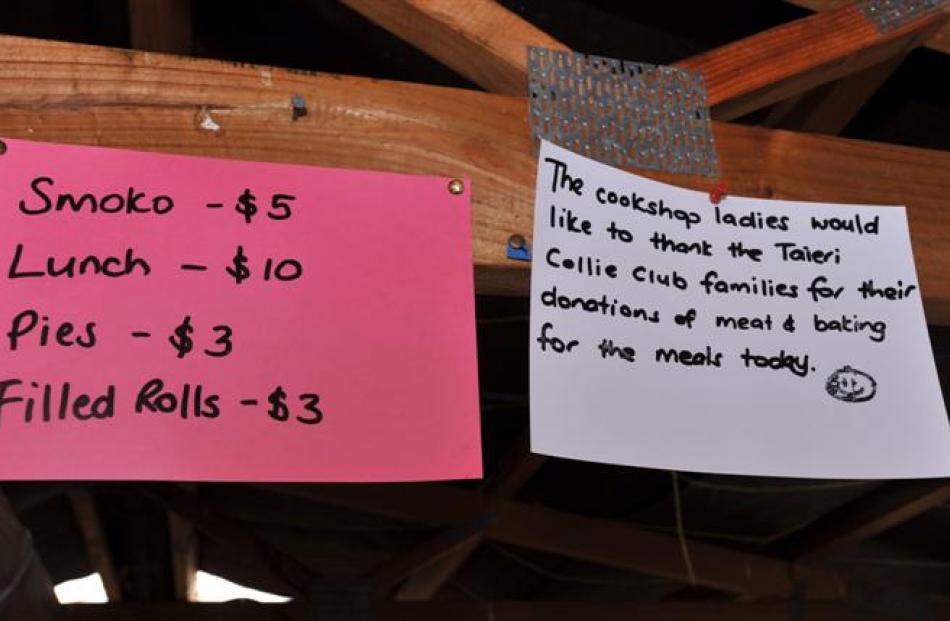 Smoko - $5
Lunch - $10
Pies - $3
Filled Rolls - $3
The cookshop ladies would
like to thank the Taieri
Collie Club families for their
donations of meat & baking
for the meals today.